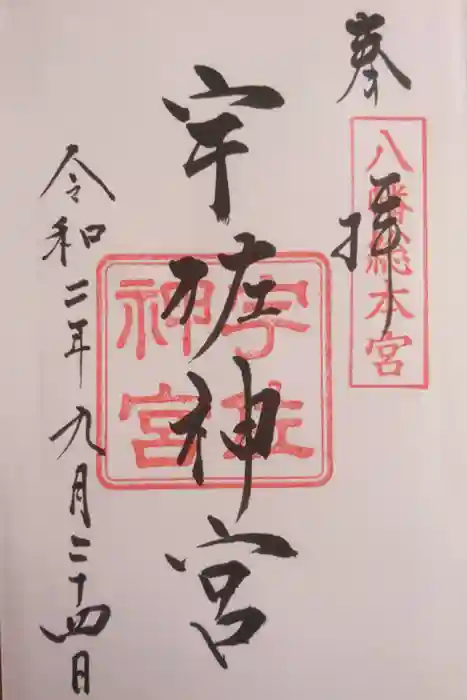 奉拝
八幡總本宮
宇佐神宮
宇佐神宮
令和二年九月二十四日